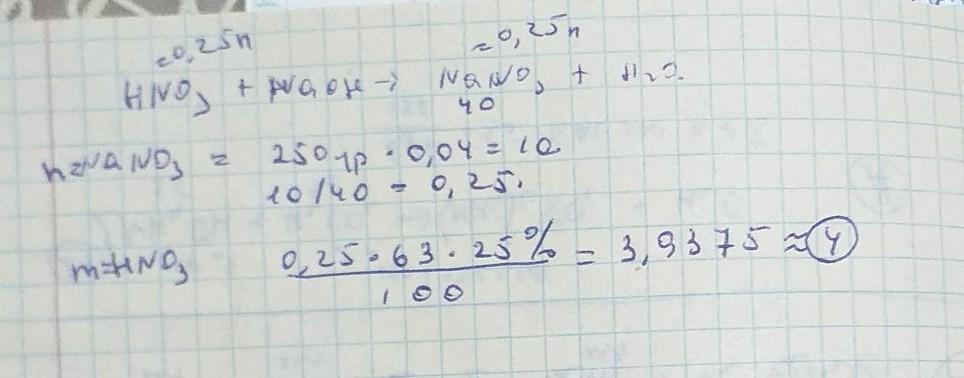 =0,25n =0,25n
HNO3 + NaOH → NaNO3 + H2O.
40
n=NaNO3 = 250гр · 0,04 = 10
10/40 = 0,25.
m=HNO3 0,25·63·25% = 3,9375 ≈ 4
100